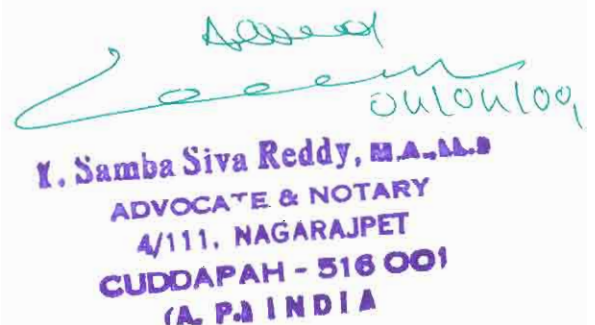 04/04/09
Y. Samba Siva Reddy, M.A., LL.B
ADVOCATE & NOTARY
4/111, NAGARAJPET
CUDDAPAH - 516 001
(A. P.) INDIA